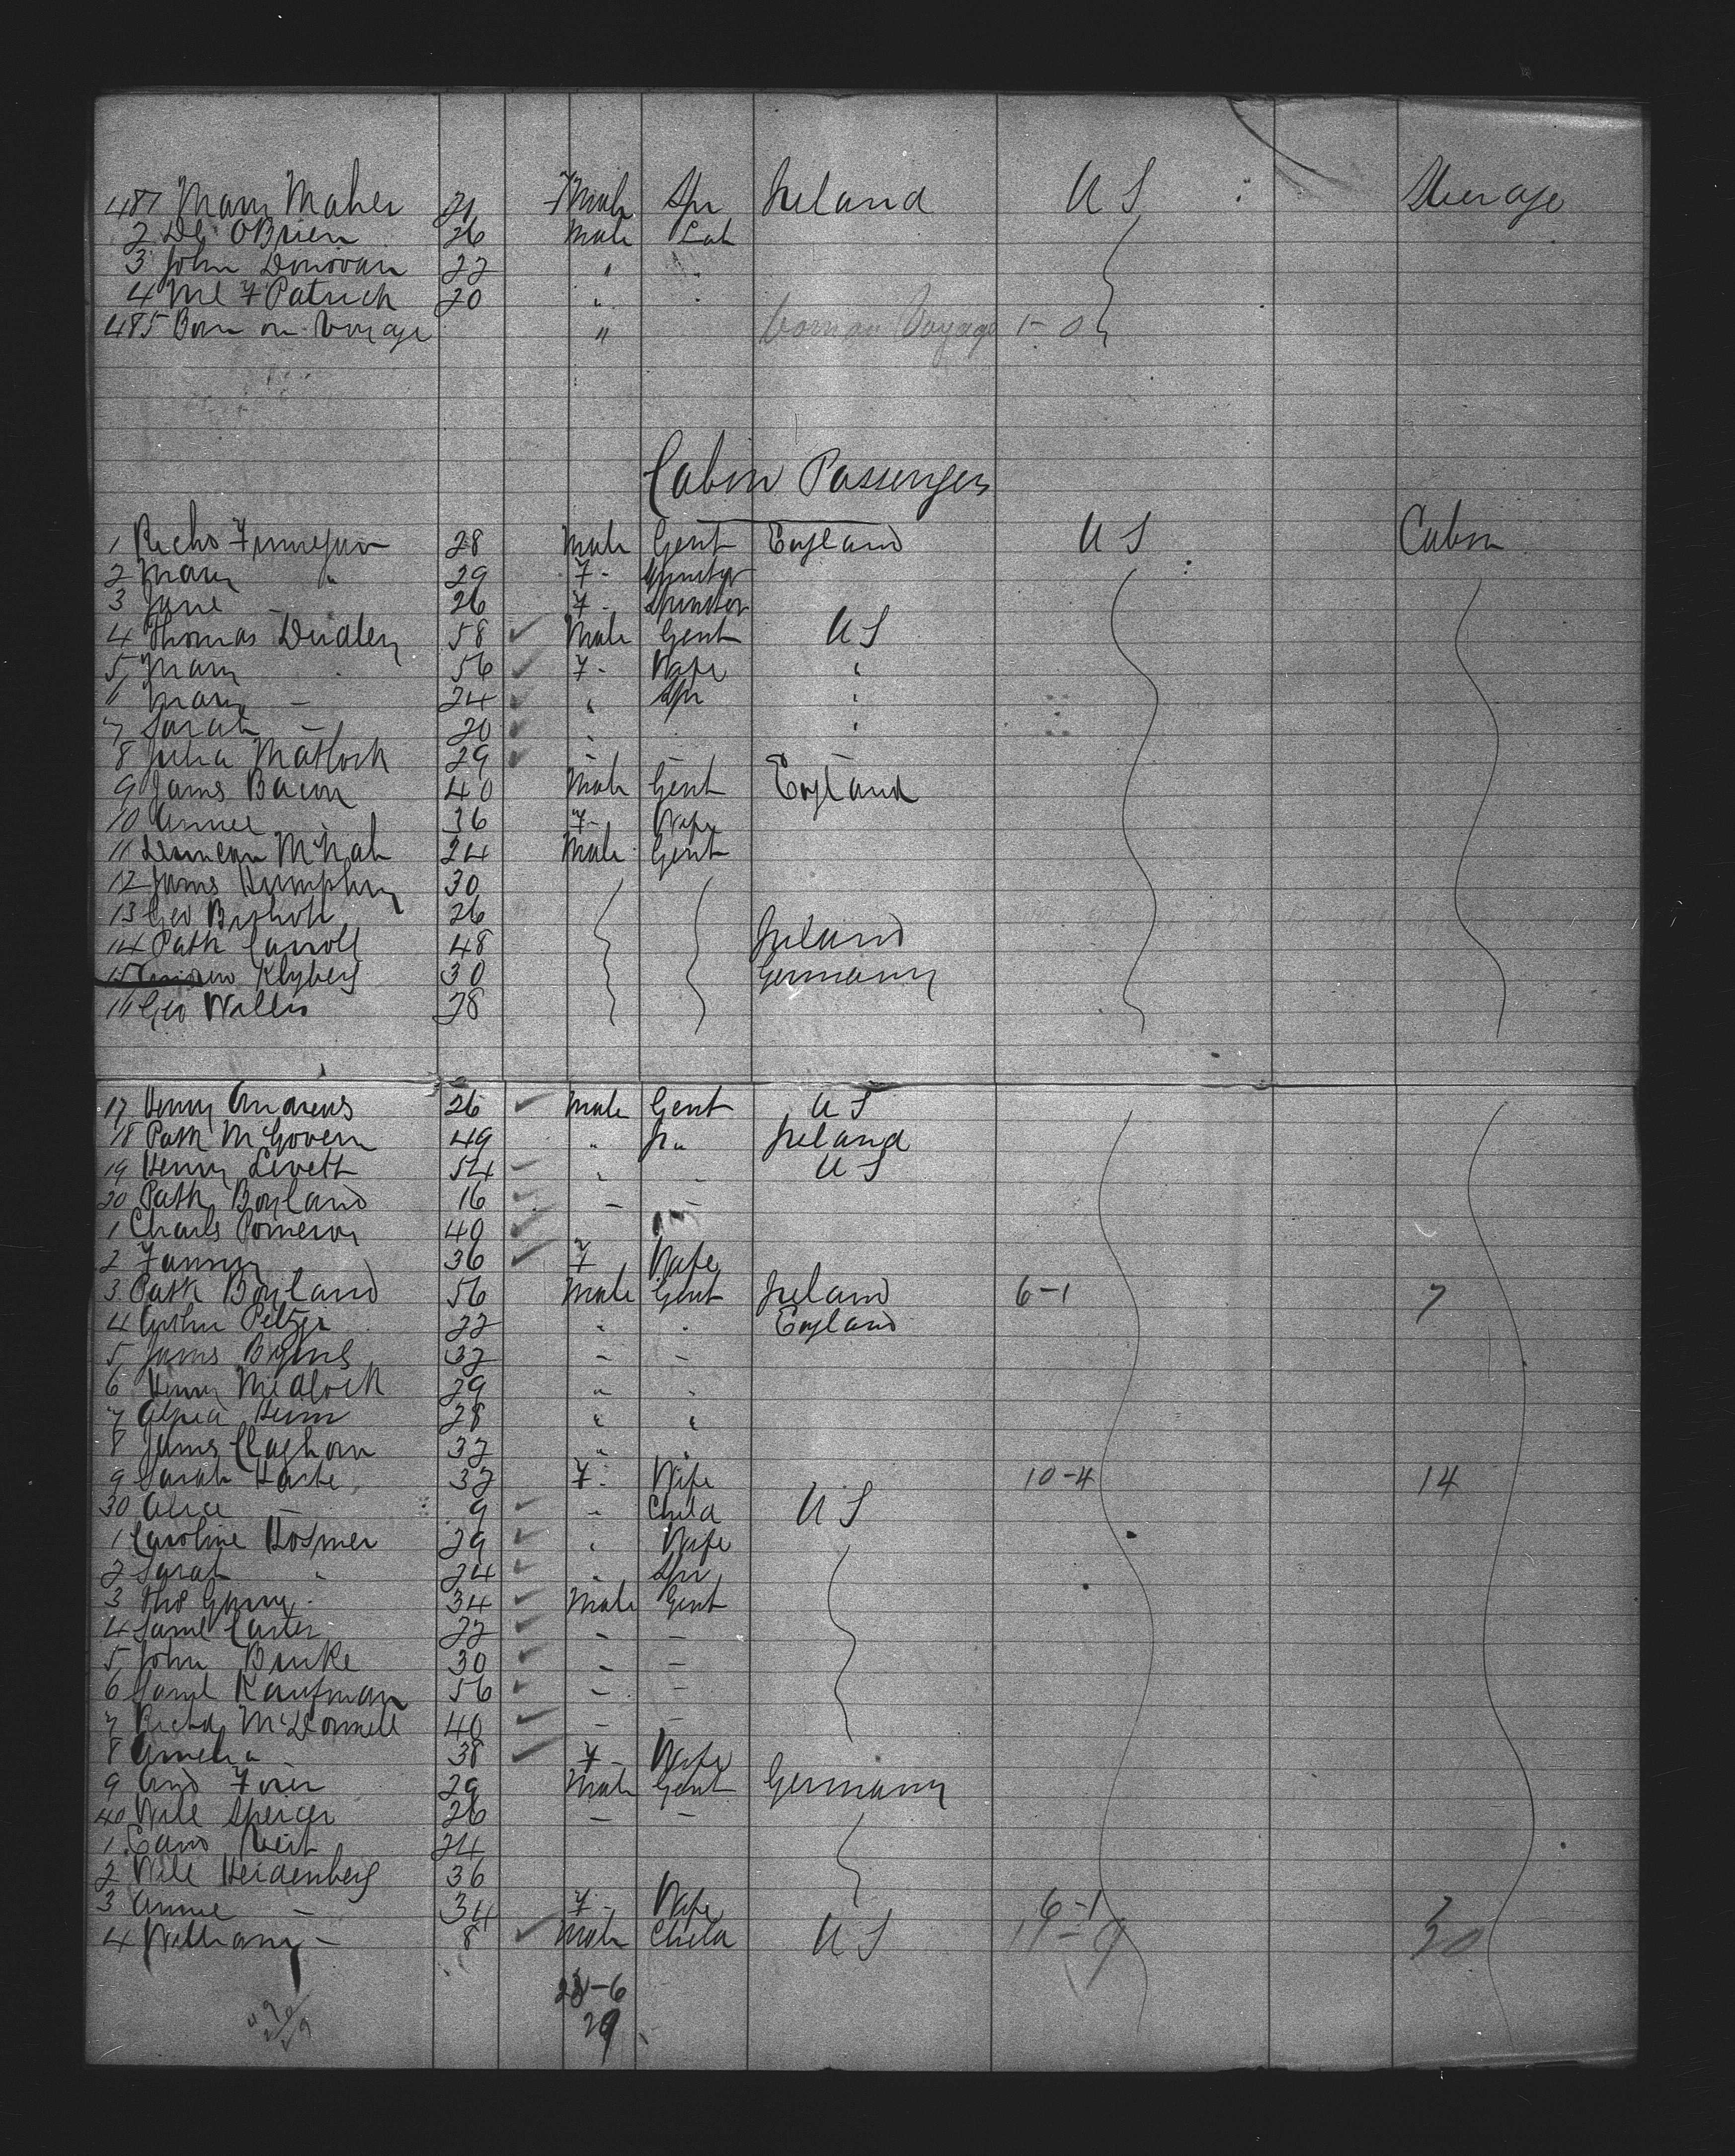 481 Mary Maher 21 Female Spr Ireland U S Steerage
2 Dl OBrien 26 Male Lab
3 John Donovan 22 "
4 Ml F Patrick 20 "
485 Born on Voyage " born on Voyage 1-0
Cabin Passengers
1 Richd Finnegan 28 Male Gent England U S Cabin
2 Mary " 29 F- Spinster
3 Jane - 26 F- Spinster
4 Thomas Dudley 58 ✓ Male Gent U S
5 Mary 56 ✓ F- Wife "
6 Mary - 24 ✓ " Spr "
7 Sarah - 20 ✓ " "
8 Julia Matlock 29 ✓ -
9 James Bacon 40 Male Gent England
10 Annie 36 F- Wife
11 Duncan McNab 24 Male Gent
12 James Humphry 30
13 Geo 26
14 Patk Carroll 48 Ireland
15 Klyberg 30 Germany
16 Geo Wallis 28
17 Henry Andrews 26 ✓ Male Gent U S
18 Patk McGovern 49 " Ireland
19 Henry Levett 54 ✓ " U S
20 Patk Boyland 16 ✓ - -
1 Charls Pomeroy 40 ✓
2 Fanny 36 ✓ F Wife
3 Patk Boyland 56 Male Gent Ireland 6-1 7
4 Arthur 22 " " England
5 James 32 - -
6 Henry Medlock 29 " "
7 28 " "
8 James Claghorn 32 "
9 Sarah Harte 32 F- Wife 10-4 14
30 Alice - 9 ✓ " Child U S
1 Caroline Hosmer 29 ✓ " Wife
2 Sarah " 24 ✓ " Spr
3 Thos 34 ✓ Male Gent
4 Saml Carter 22 ✓ - -
5 John Burke 30 ✓ - -
6 Saml Kaufman 56 ✓ - -
7 Richd McDonnell 40 ✓ - -
8 Amelia 38 ✓ F- Wife
9 And 29 Male Gent Germany
40 Will Speicer 26 - -
1 Edwd Veit 24
2 Will Heidenberg 36
3 Annie - 34 F- Wife 6-1
4 William - 8 ✓ Male Child U S 30
29